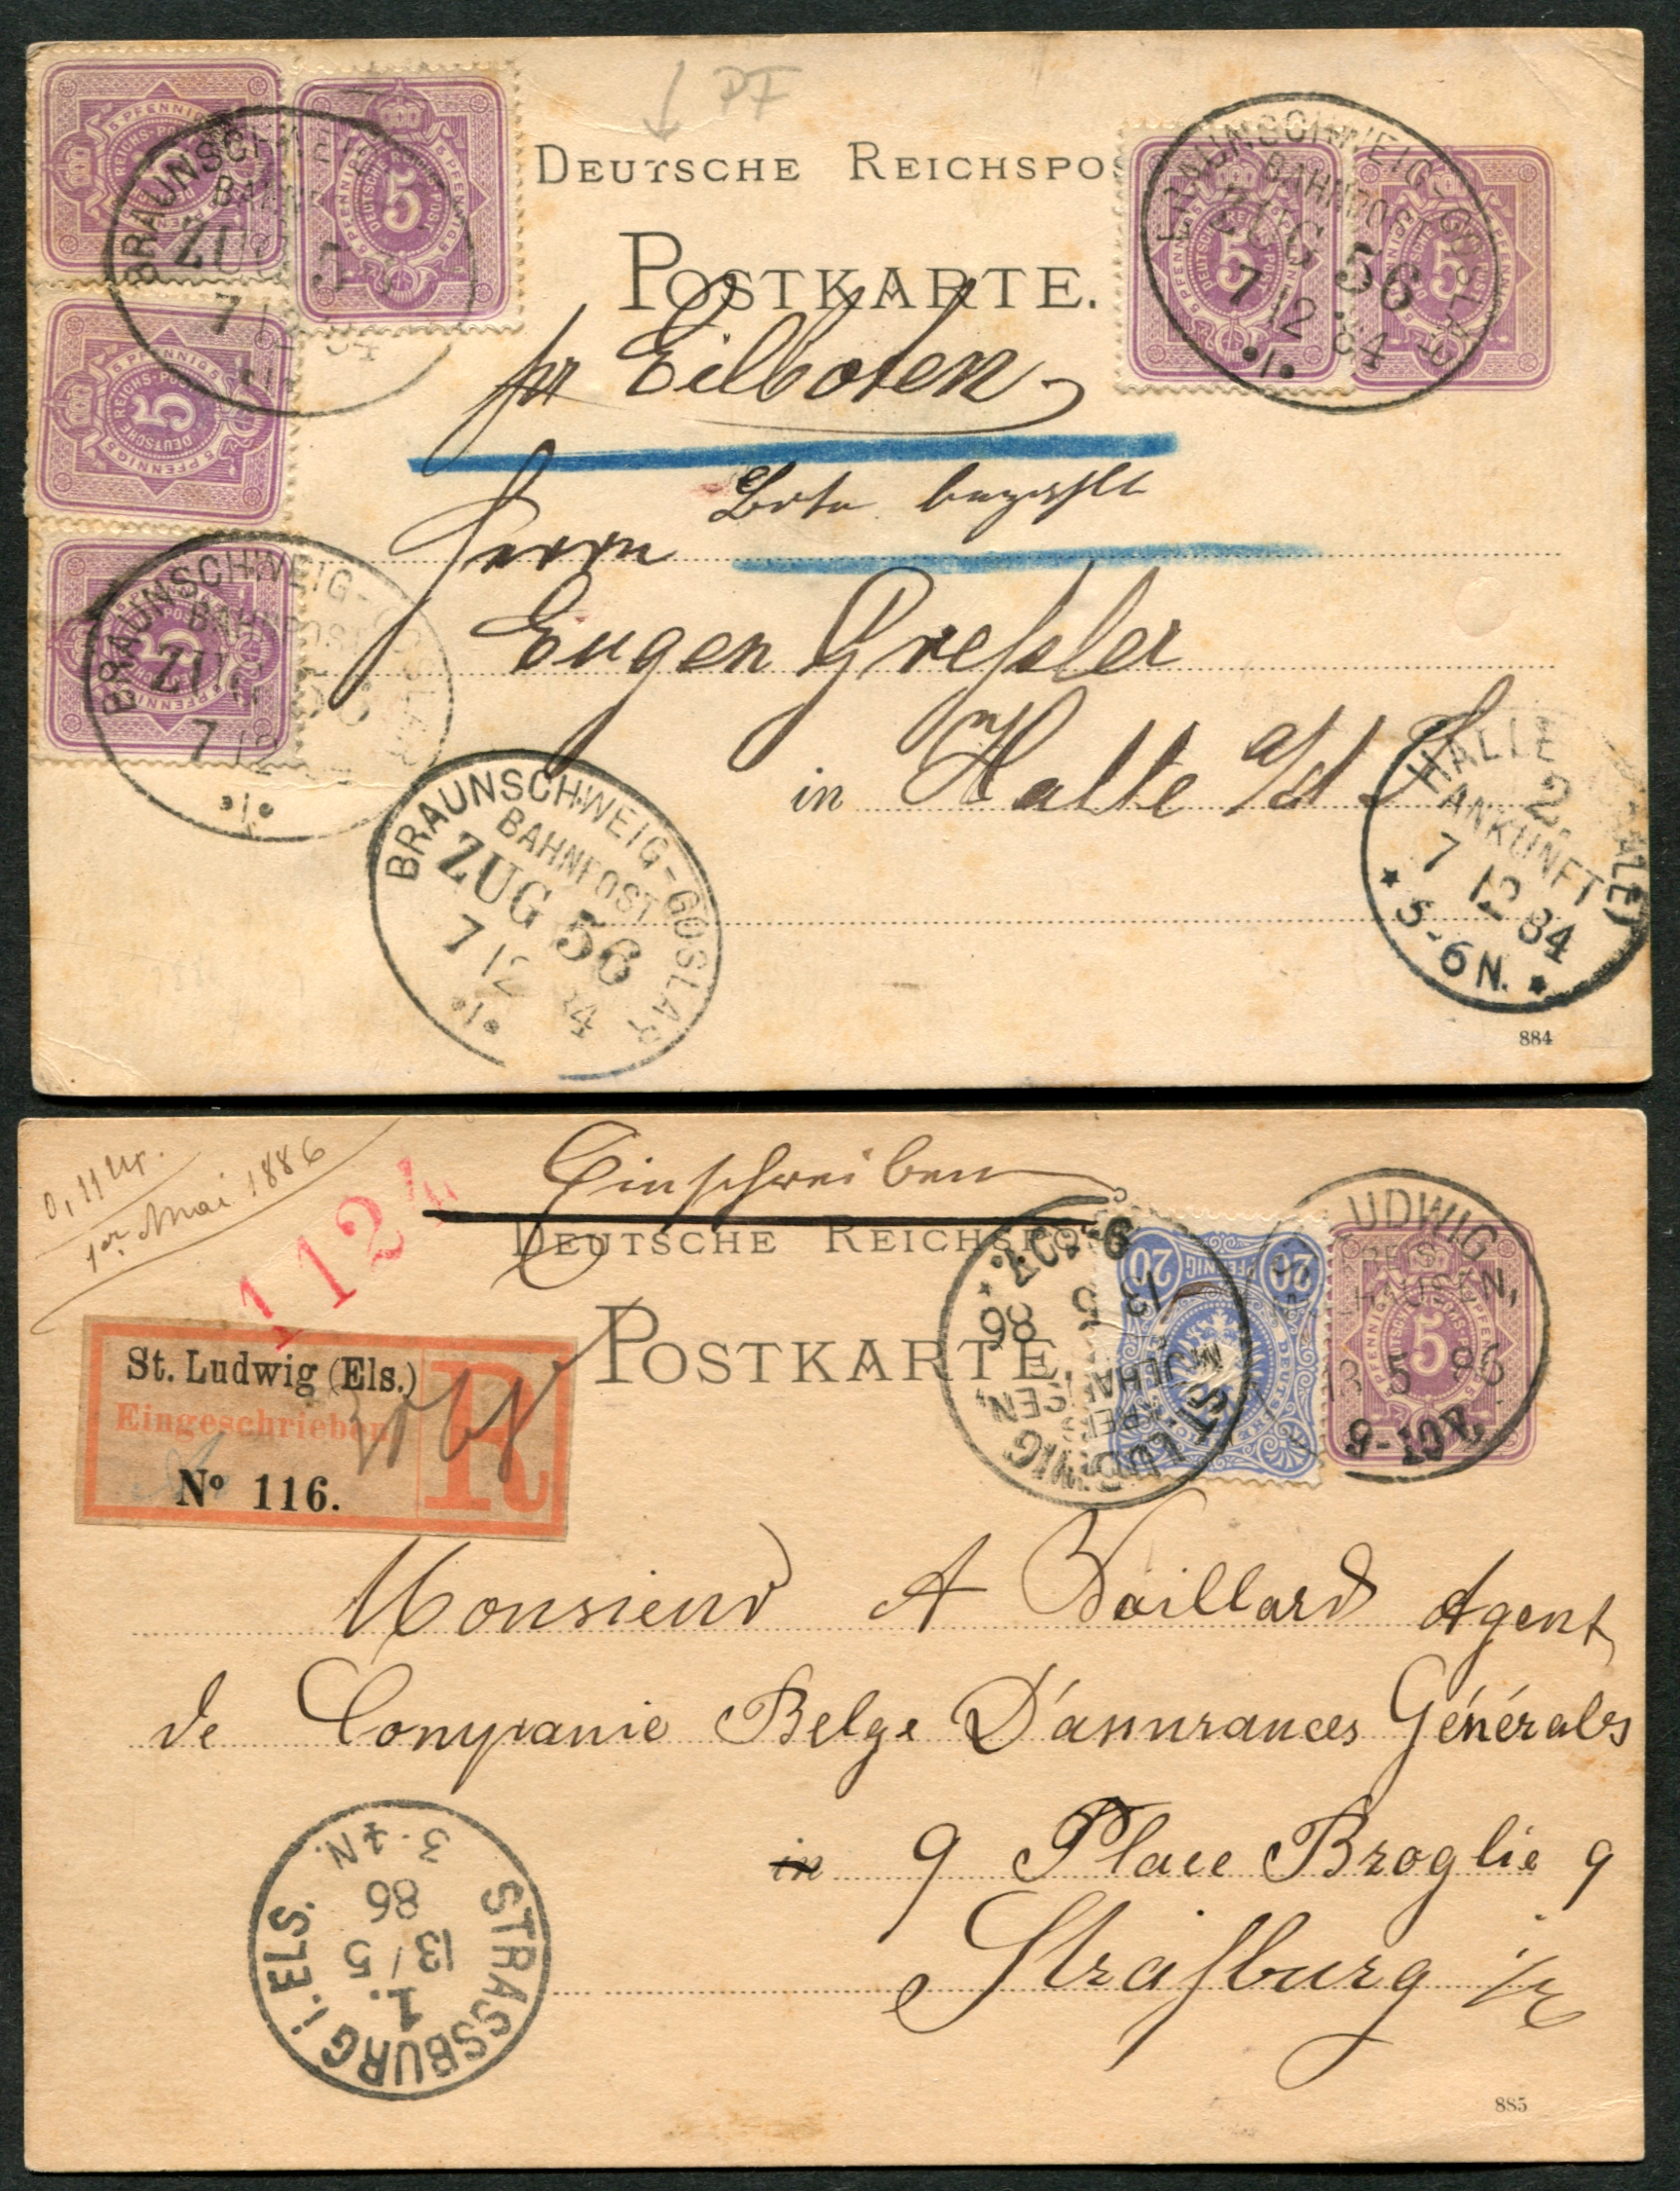 PF
DEUTSCHE REICHSPO
POSTKARTE.
pr Eilboten
Bote bezahlt
Herrn
Eugen Greßler
in Halle a/d S
5 PFENNIG 5
DEUTSCHE REICHS-POST
BRAUNSCHWEIG-GOSLAR
BAHNPOST
ZUG 56
7 12 84
BRAUNSCHWEIG-GOSLAR
BAHNPOST
ZUG 56
7 12
BRAUNSCHWEIG-GOSLAR
BAHNPOST
ZUG 56
7 12 84
HALLE (SAALE)
2.
ANKUNFT
7 12 84
5-6N.
884
1er Mai 1886
1124
Einschreiben
DEUTSCHE REICHSPO
POSTKARTE
St. Ludwig (Els.)
Eingeschrieben
No 116.
R
20 PFENNIG 20
5
ST. LUDWIG
13 5 86
9-10V.
LUDWIG
13 5 86
9-10V.
Monsieur A Vaillard Agent
de Compagnie Belge D'assurances Générales
in 9 Place Broglie 9
Straßburg i/E
STRASSBURG i. ELS.
1.
13/5
86
885